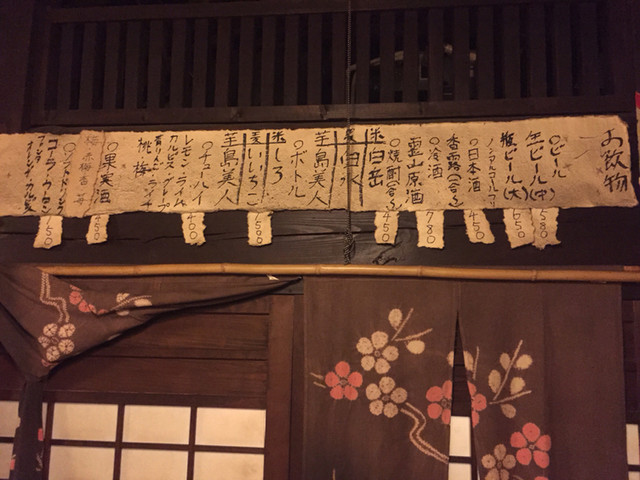 お飲物
○ビール
生ビール(中)
580
瓶ビール(大)
650
ノンアルコールビール
○日本酒
香露(一合)
450
○冷酒
霊山原酒
780
○焼酎(一合)
450
米白岳
芋島美人
○ボトル
米しろ
麦いいちこ
芋島美人
○チューハイ
レモン・ライム
カルピス・グレープ
青りんご・ライチ
桃 梅
400
○果実酒
450
○ソフトドリンク
コーラ・ウーロン